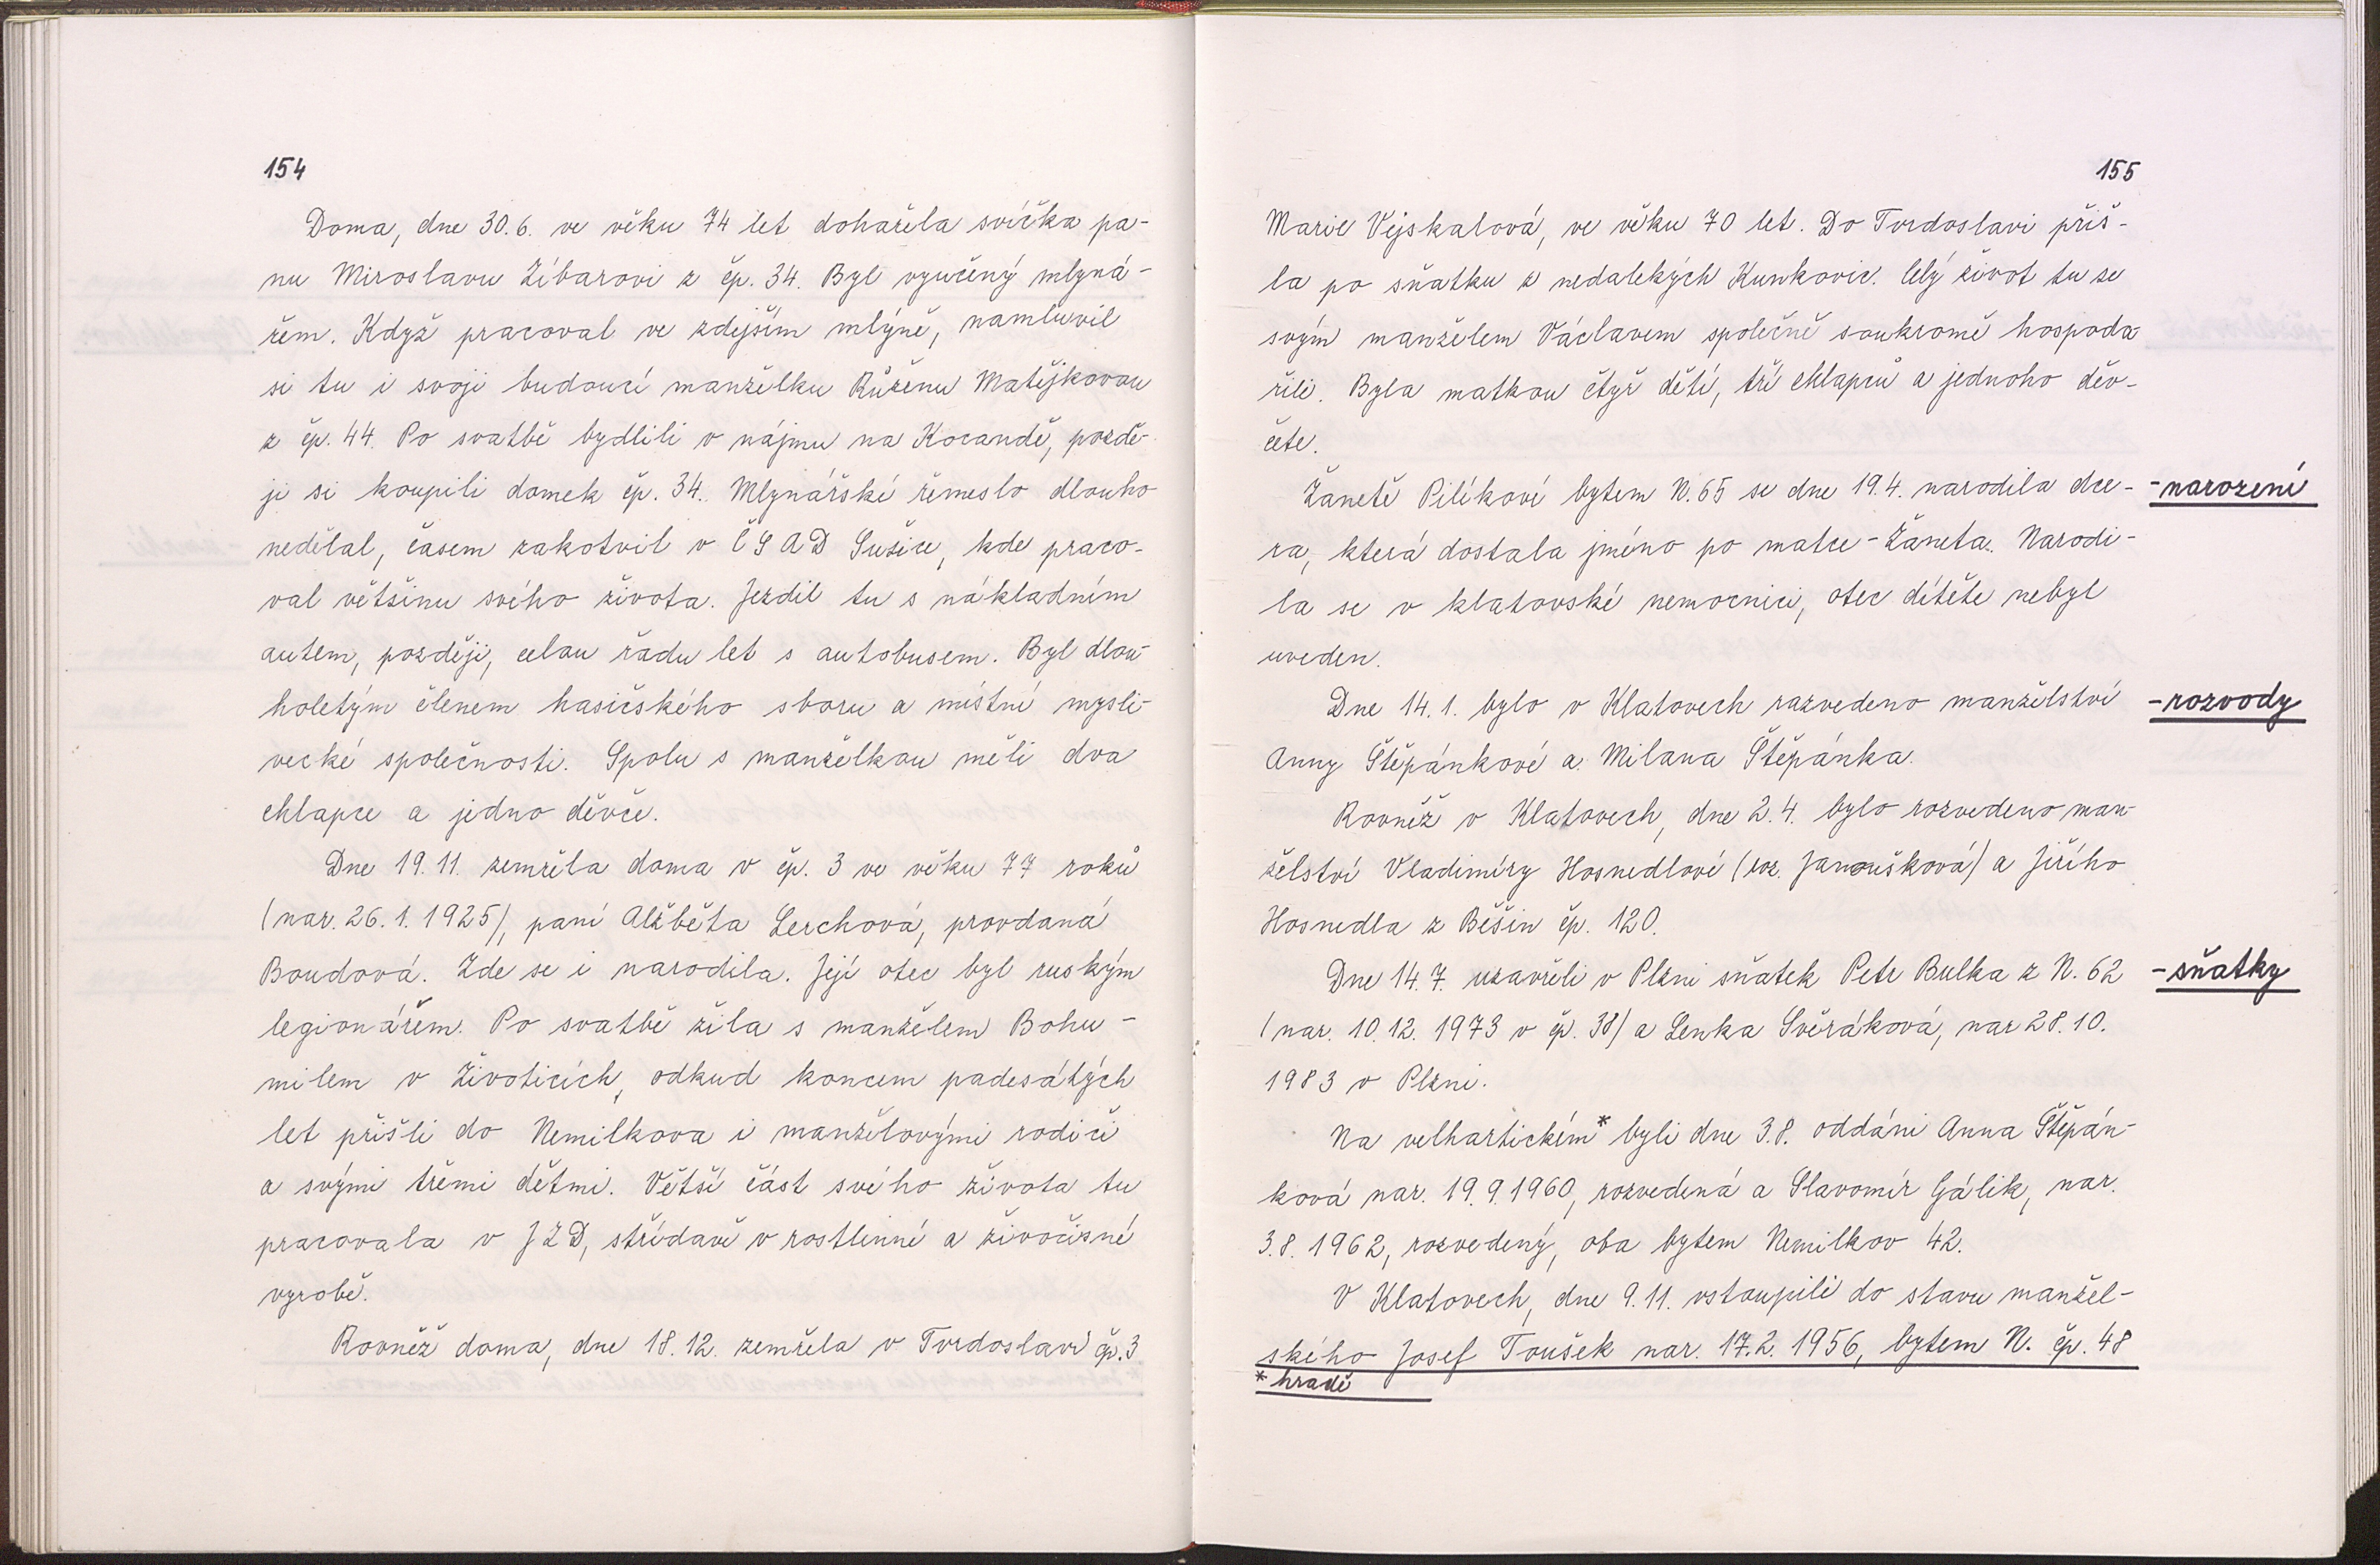 154
Doma, dne 30. 6. ve věku 74 let dohařela svíčka pa-
nu Miroslavu Zíbarovi z čp. 34. Byl vyučený mlyná-
řem. Když pracoval ve zdejším mlýně, namluvil
si tu i svoji budoucí manželku Růženu Matějkovou
z čp. 44. Po svatbě bydlili v nájmu na Kocandě, pozdě-
ji si koupili domek čp. 34. Mlynářské řemeslo dlouho
nedělal, časem zakotvil v ČSAD Sušice, kde praco-
val většinu svého života. Jezdil tu s nákladním
autem, později, celou řadu let s autobusem. Byl dlou-
holetým členem hasičského sboru a místní mysli-
vecké společnosti. Spolu s manželkou měli dva
chlapce a jedno děvče.
Dne 19. 11. zemřela doma v čp. 3 ve věku 77 roků
(nar. 26. 1. 1925), paní Alžběta Lerchová, provdaná
Boudová. Zde se i narodila. Její otec byl ruským
legionářem. Po svatbě žila s manželem Bohu-
milem v Životicích, odkud koncem padesátých
let přišli do Nemilkova i manželovými rodiči
a svými třemi dětmi. Větší část svého života tu
pracovala v JZD, střídavě v rostlinné a živočisné
vyrobě.
Rovněž doma, dne 18. 12. zemřela v Tvrdoslavi čp. 3
155
Marie Vejskalová, ve věku 70 let. Do Tvrdoslavi přiš-
la po sňatku z nedalekých Kunkovic. Celý život tu se
svým manželem Václavem společně soukromě hospoda-
řili. Byla matkou čtyř dětí, tří chlapců a jednoho děv-
čete.
Žanetě Pilíkové bytem N. 65 se dne 19. 4. narodila dce-
- narození
ra, která dostala jméno po matce - Žaneta. Narodi-
la se v klatovské nemocnici, otec dítěte nebyl
uveden.
Dne 14. 1. bylo v Klatovech rozvedeno manželství
- rozvody
Anny Štěpánkové a Milana Štěpánka.
Rovněž v Klatovech, dne 2. 4. bylo rozvedeno man-
želství Vladimíry Hosnedlové (roz. Janoušková) a Jiřího
Hosnedla z Běšin čp. 120.
Dne 14. 7. uzavřeli v Plzni sňatek Petr Bulka z N. 62
- sňatky
(nar. 10. 12. 1973 v čp. 38) a Lenka Svěráková, nar 28. 10.
1983 v Plzni.
Na velhartickém* byli dne 3. 8. oddáni Anna Štěpán-
ková nar. 19. 9. 1960, rozvedená a Slavomír Gálik, nar.
3. 8. 1962, rozvedený, oba bytem Nemilkov 42.
V Klatovech, dne 9. 11. vstoupili do stavu manžel-
ského Josef Toušek nar. 17. 2. 1956, bytem N. čp. 48
* hradě